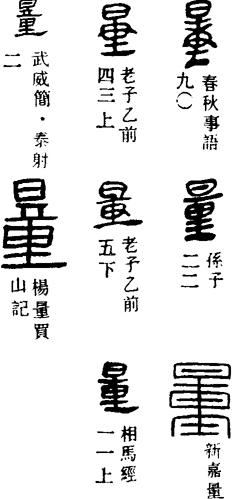 量
春秋事語
九〇
量
孫子
二二
量
新嘉量
量
老子乙前
四三上
量
老子乙前
五下
量
相馬經
一一上
量
武威簡·泰射
二
量
楊量買
山記